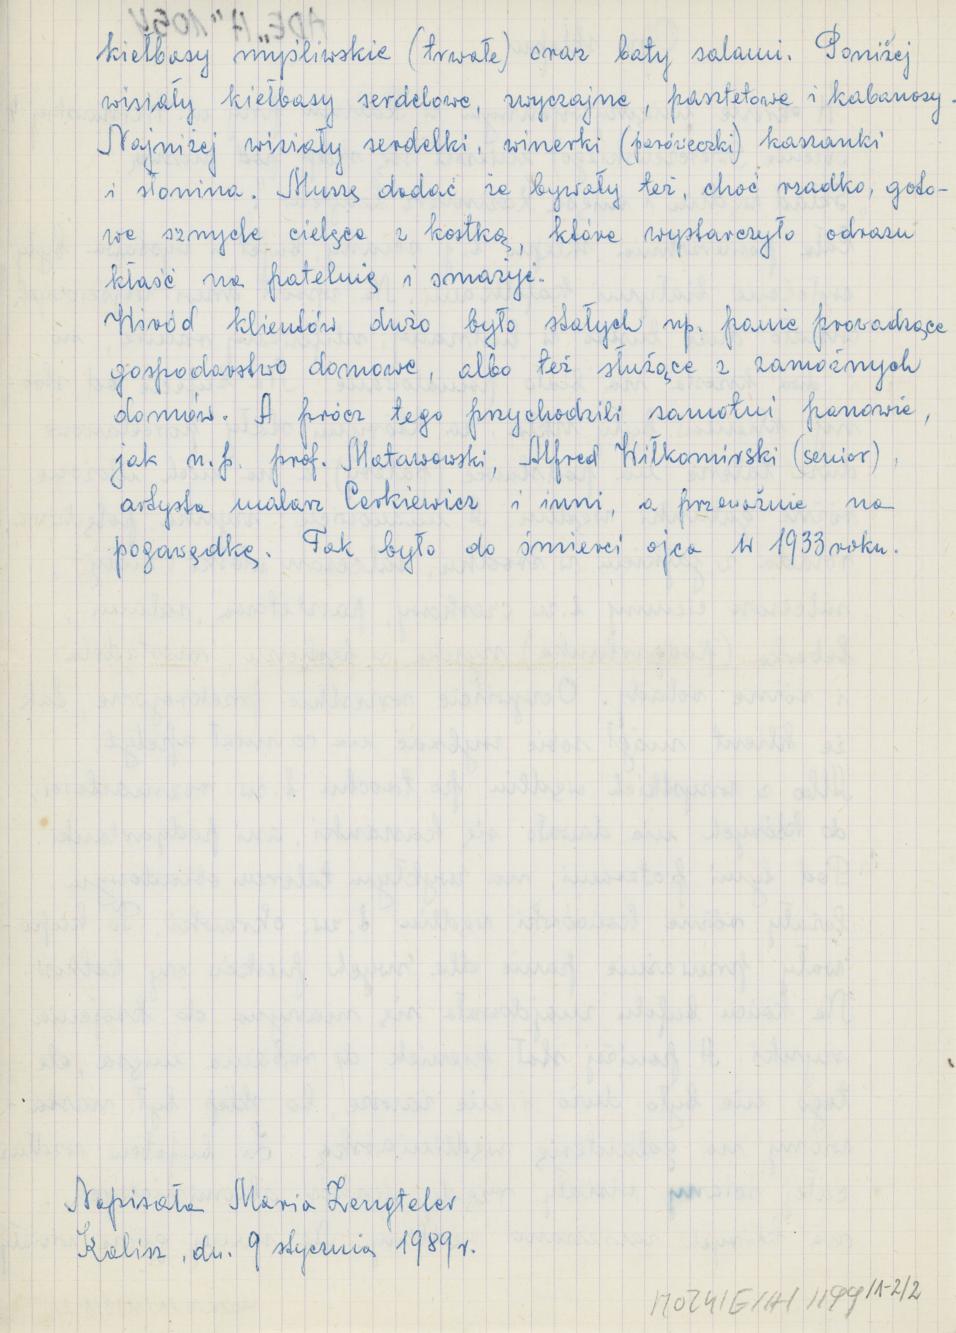 kiełbasy myśliwskie (trwałe) oraz baty salami. Poniżej
wisiały kiełbasy serdelowe, zwyczajne, pasztetowe i kabanosy.
Najniżej wisiały serdelki, winerki (paróweczki) kaszanki
i słonina. Muszę dodać że bywały też, choć rzadko, goto-
we sznycle cielęce z kostką, które wystarczyło odrazu
kłaść na patelnię i smażyć.
Wśród klientów dużo było stałych np. panie prowadzące
gospodarstwo domowe, albo też służące z zamożnych
domów. A prócz tego przychodzili samotni panowie,
jak n.p. prof. Matawowski, Alfred Wiłkomirski (senior),
artysta malarz Cerkiewicz i inni, a przeważnie na
pogawędkę. Tak było do śmierci ojca w 1933 roku.
Napisała Maria
Kalisz, dn. 9 stycznia 1989 r.
/1-2/2